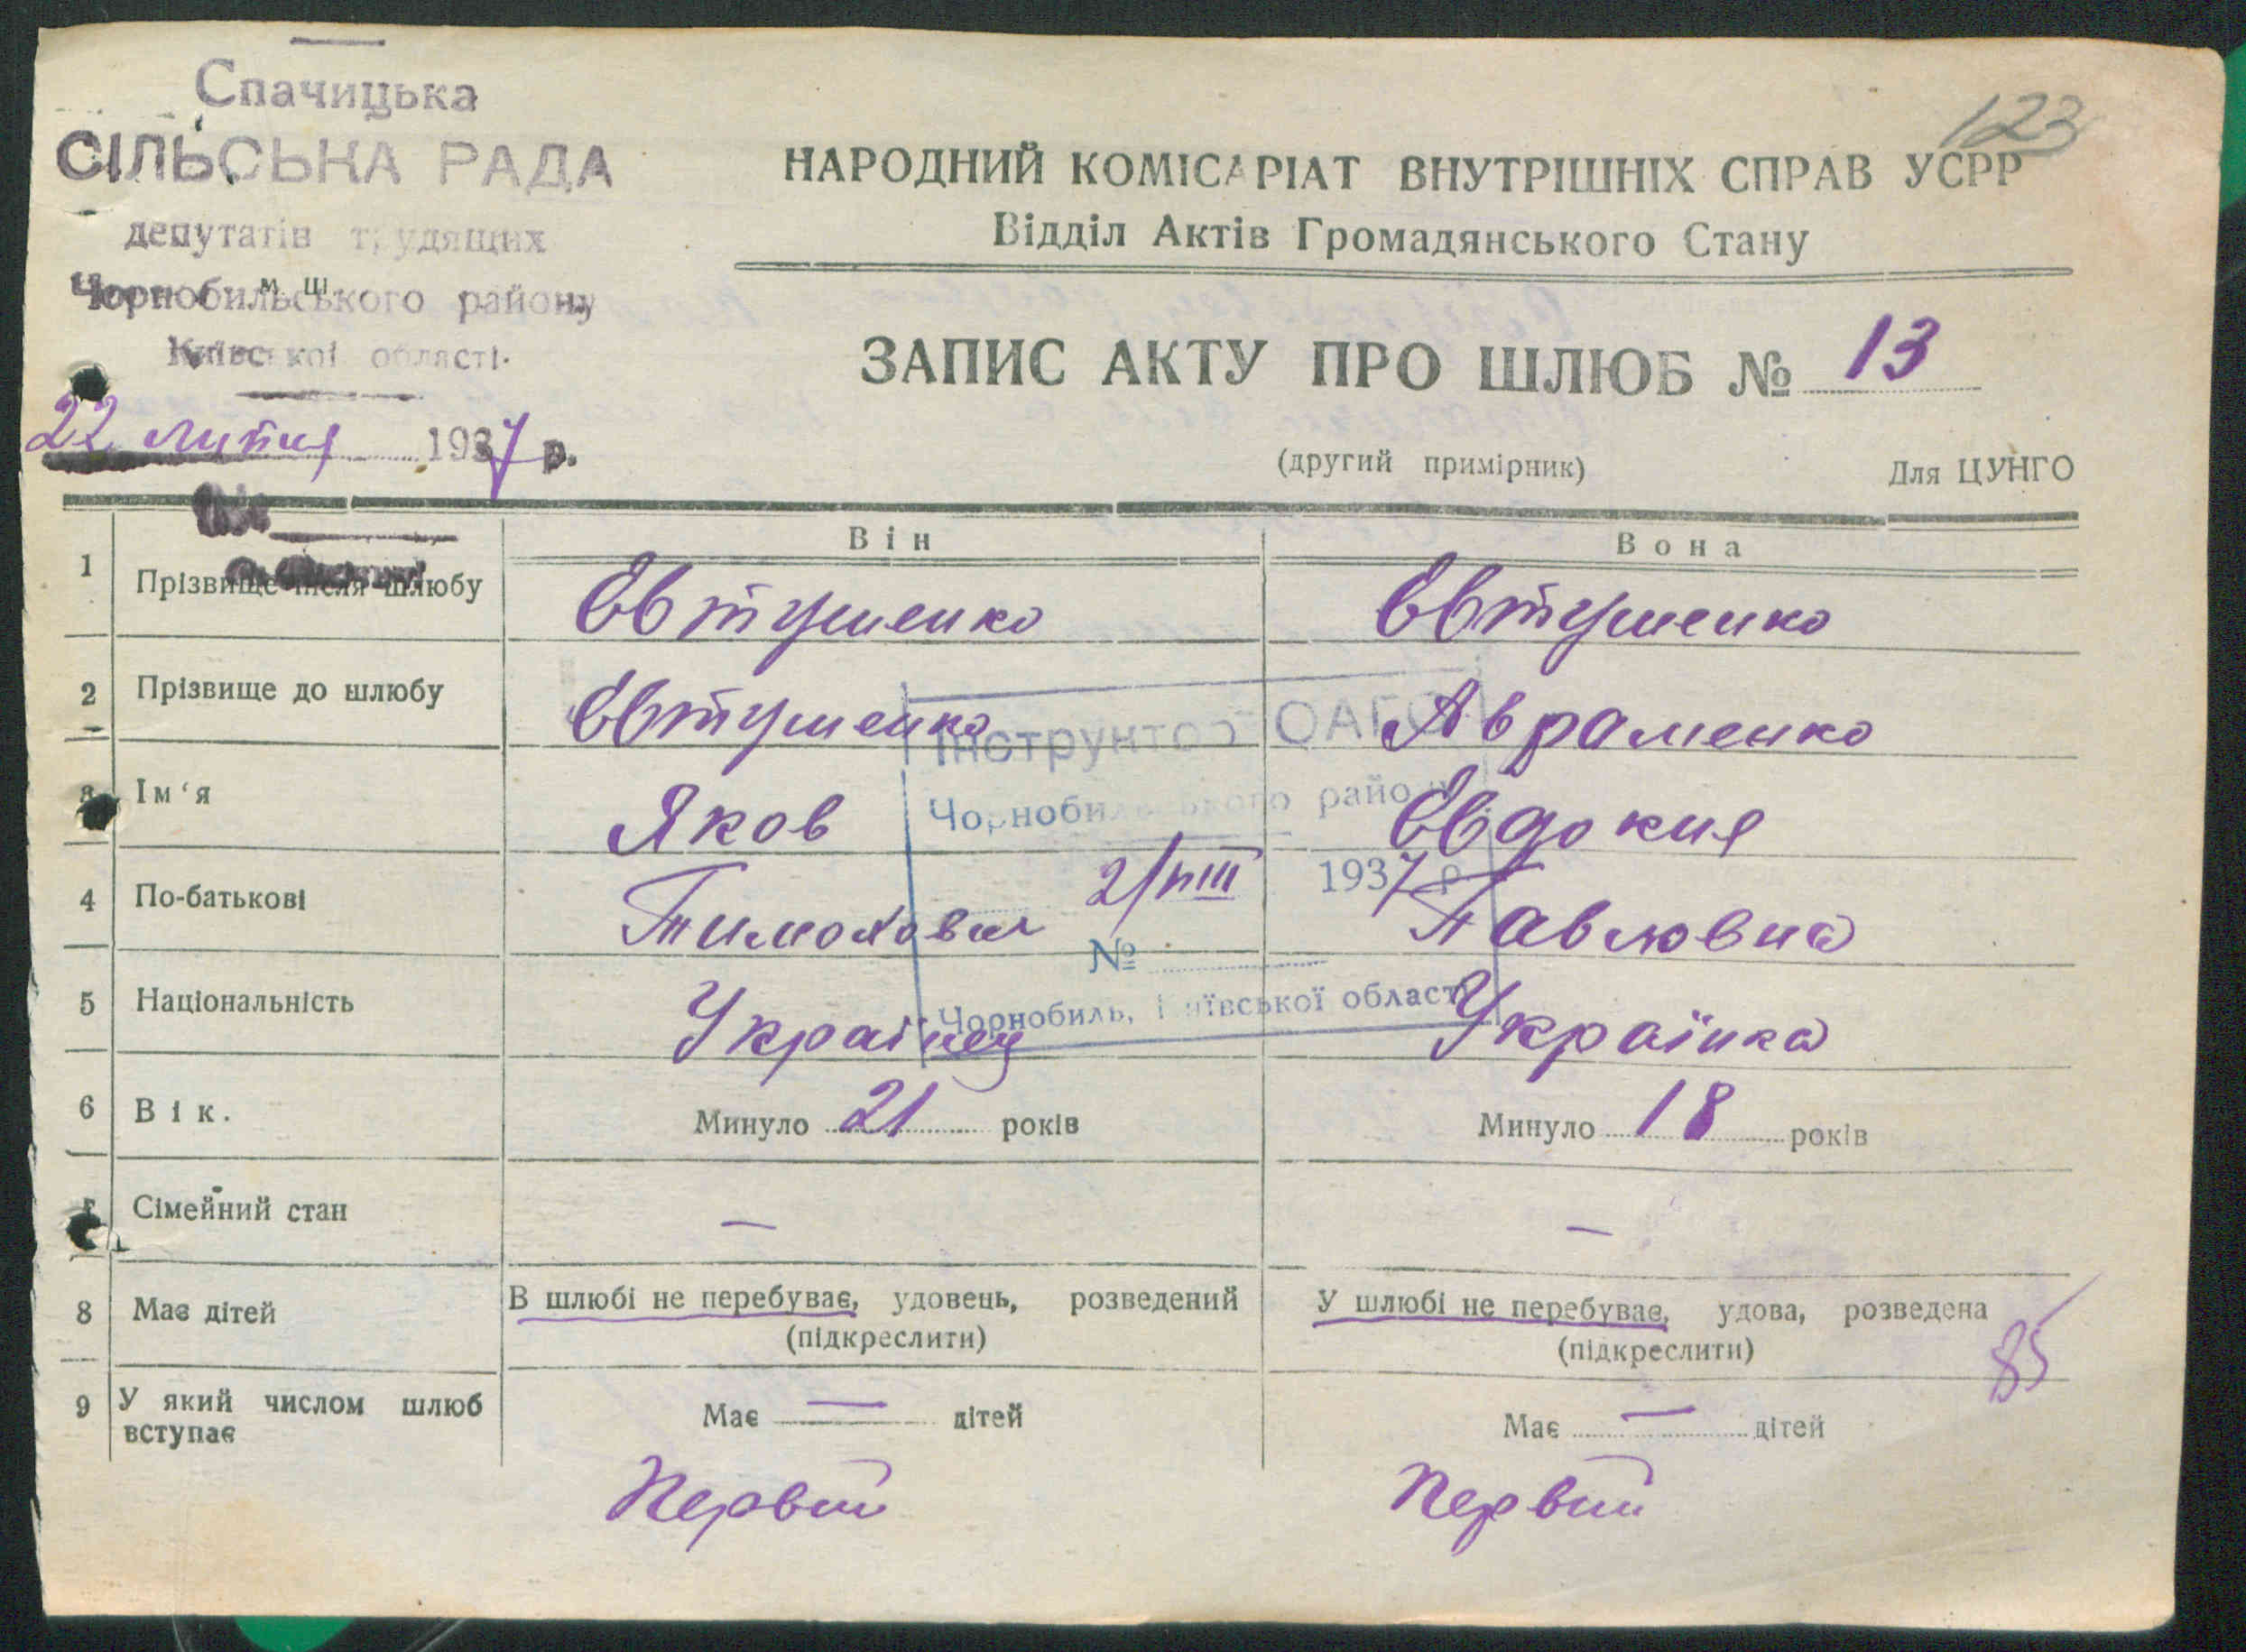 Спачицька
СІЛЬСЬКА РАДА
депутатів трудящих
м. ш.
Чорнобильського району
Київської області.
22 липня 1937 р.
123
НАРОДНИЙ КОМІСАРІАТ ВНУТРІШНІХ СПРАВ УСРР
Відділ Актів Громадянського Стану
ЗАПИС АКТУ ПРО ШЛЮБ № 13
(другий примірник)
Для ЦУНГО
Він Вона
1 Прізвище після шлюбу Євтушенко Євтушенко
2 Прізвище до шлюбу Євтушенко Авраменко
Інструктор ОАГС
3 Ім'я Яков Євдокия
Чорнобильського району
4 По-батькові Тимохович Павловна
21/VIII 1937 р.
№
5 Національність Українец Українка
Чорнобиль, Київської області
6 Вік. Минуло 21 років Минуло 18 років
7 Сімейний стан — —
8 Має дітей В шлюбі не перебуває, удовець, розведений У шлюбі не перебуває, удова, розведена
(підкреслити) (підкреслити)
85
9 У який числом шлюб вступає Має — дітей Має — дітей
Первий Первий